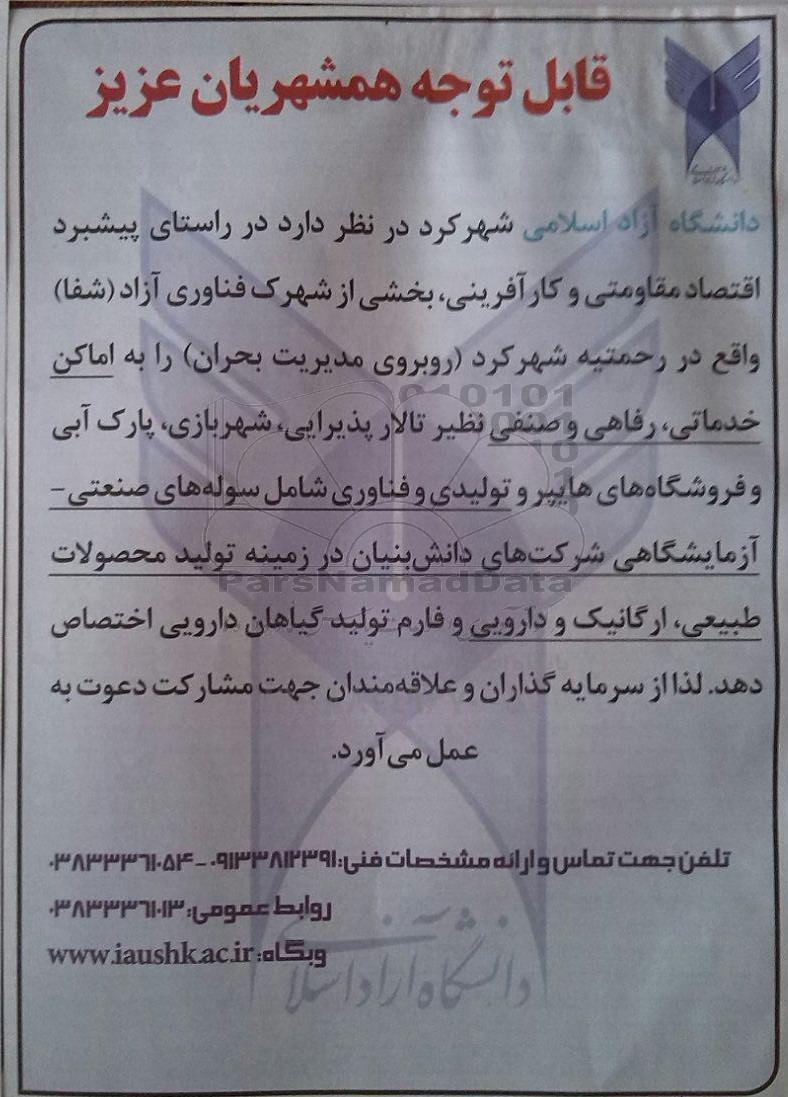 قابل توجه همشهریان عزیز
دانشگاه آزاد اسلامی شهرکرد در نظر دارد در راستای پیشبرد
اقتصاد مقاومتی و کارآفرینی، بخشی از شهرک فناوری آزاد (شفا)
واقع در رحمتیه شهرکرد (روبروی مدیریت بحران) را به اماکن
خدماتی، رفاهی و صنفی نظیر تالار پذیرایی، شهربازی، پارک آبی
و فروشگاه‌های هایپر و تولیدی و فناوری شامل سوله‌های صنعتی-
آزمایشگاهی شرکت‌های دانش‌بنیان در زمینه تولید محصولات
ParsNamadData
طبیعی، ارگانیک و دارویی و فارم تولید گیاهان دارویی اختصاص
دهد. لذا از سرمایه گذاران و علاقه‌مندان جهت مشارکت دعوت به
عمل می‌آورد.
تلفن جهت تماس و ارائه مشخصات فنی: ۰۹۱۳۳۸۱۲۳۹۱ - ۰۳۸۳۳۳۶۱۰۵۴
روابط عمومی: ۰۳۸۳۳۳۶۱۰۱۳
وبگاه: www.iaushk.ac.ir
دانشگاه آزاد اسلامی